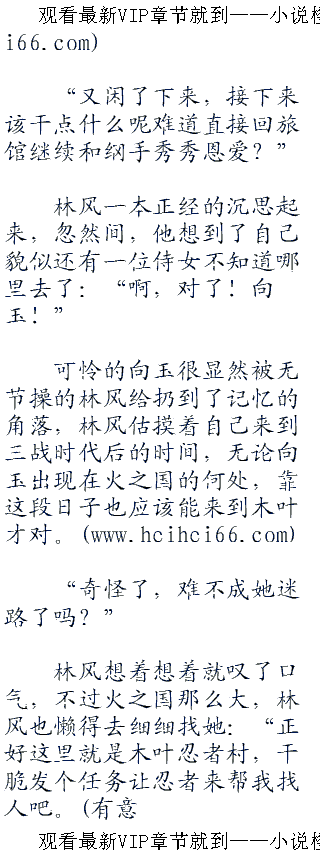 观看最新VIP章节就到——小说
i66.com)
“又闲了下来，接下来
该干点什么呢难道直接回旅
馆继续和纲手秀秀恩爱？”
林风一本正经的沉思起
来，忽然间，他想到了自己
貌似还有一位侍女不知道哪
里去了：“啊，对了！向
玉！”
可怜的向玉很显然被无
节操的林风给扔到了记忆的
角落，林风估摸着自己来到
三战时代后的时间，无论向
玉出现在火之国的何处，靠
这段日子也应该能来到木叶
才对。(www.hcihci66.com)
“奇怪了，难不成她迷
路了吗？”
林风想着想着就叹了口
气，不过火之国那么大，林
风也懒得去细细找她：“正
好这里就是木叶忍者村，干
脆发个任务让忍者来帮我找
人吧。(有意
观看最新VIP章节就到——小说